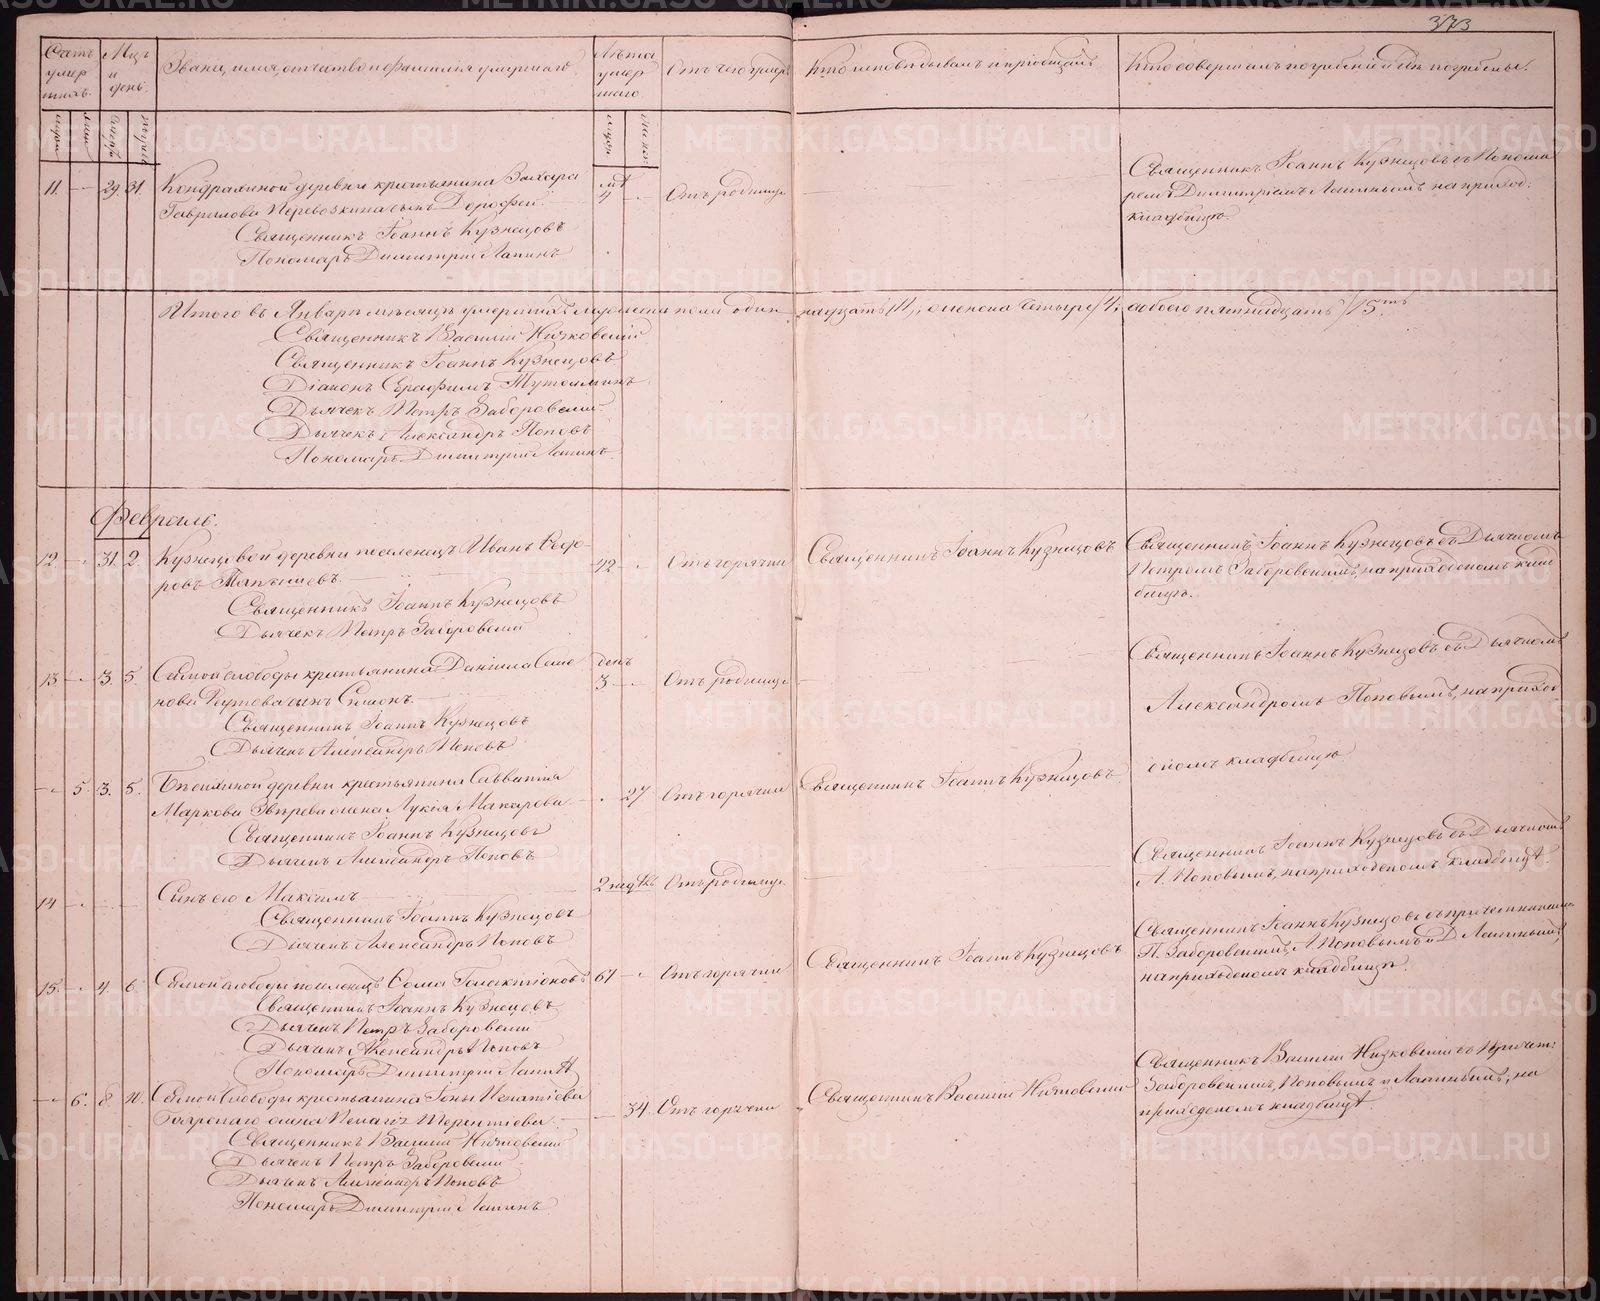 373
Счетъ умершихъ.
Мцъ и день.
Званіе, имя, отчество и фамилія умершаго.
Лѣта умершаго
Отъ чего умеръ
Кто исповѣдывалъ и пріобщалъ.
Кто совершалъ погребеніе и гдѣ погребены.
11. 29. 31. Кондрахиной деревни крестьянина Захара
Гаврилова Перевозкина сынъ Дорофей.
Священникъ Іоаннъ Кузнецовъ
Пономарь Димитрій Лапинъ
4
Отъ родимца
Священникъ Іоаннъ Кузнецовъ съ Понома
ремъ Димитріемъ Лапинымъ на приход.
кладбищѣ.
Итого въ Январѣ мѣсяцѣ умершихъ мужеска пола один
надцать /11/, женска четыре /4/, обоего пятнадцать /15.ть
Священникъ Василій Низковскій
Священникъ Іоаннъ Кузнецовъ
Діаконъ Серафимъ Тутолминъ
Дьячекъ Петръ Заборовскій
Дьячекъ Александръ Поповъ
Пономарь Димитрій Лапинъ.
Февраль.
12 31. 2. Кузнецовой деревни поселенецъ Иванъ Ѳедо-
ровъ
Священникъ Іоаннъ Кузнецовъ
Дьячекъ Петръ Заборовскій
42
Отъ горячки
Священникъ Іоаннъ Кузнецовъ
Священникъ Іоаннъ Кузнецовъ съ Дьячкомъ
Петромъ Заборовскимъ, на приходскомъ клад
бищѣ.
13. 3. 5. Самой слободы крестьянина Даніила Семе
нова сынъ Симонъ.
Священникъ Іоаннъ Кузнецовъ
Дьячекъ Александръ Поповъ
день
3
Отъ родимца
Священникъ Іоаннъ Кузнецовъ съ Дьячкомъ
Александромъ Поповымъ, на приход
скомъ кладбищѣ
5. 3. 5. деревни крестьянина Савватія
Маркова жена Лукія Макарова
Священникъ Іоаннъ Кузнецовъ
Дьячекъ Александръ Поповъ
27
Отъ горячки
Священникъ Іоаннъ Кузнецовъ
Священникъ Іоаннъ Кузнецовъ съ Дьячкомъ
А. Поповымъ, на приходскомъ кладбищѣ.
14 Сынъ его Максимъ
Священникъ Іоаннъ Кузнецовъ
Дьячекъ Александръ Поповъ
2 недѣль
Отъ родимца
15. 4. 6. Самой слободы поселенецъ Ѳома Галактіоновъ
Священникъ Іоаннъ Кузнецовъ
Дьячекъ Петръ Заборовскій
Дьячекъ Александръ Поповъ
Пономарь Димитрій Лапинъ
61
Отъ горячки
Священникъ Іоаннъ Кузнецовъ
Священникъ Іоаннъ Кузнецовъ съ причетниками
П. Заборовскимъ, А. Поповымъ и Д. Лапинымъ,
на приходскомъ кладбищѣ.
6. 8. 10. Самой слободы крестьянина Іоны Игнатіева
жена Пелагія Терентіева.
Священникъ Василій Низковскій
Дьячекъ Петръ Заборовскій
Дьячекъ Александръ Поповъ
Пономарь Димитрій Лапинъ
34
Отъ горячки
Священникъ Василій Низковскій
Священникъ Василій Низковскій съ Причет:
Заборовскимъ, Поповымъ и Лапинымъ, на
приходскомъ кладбищѣ.
METRIKI.GASO-URAL.RU